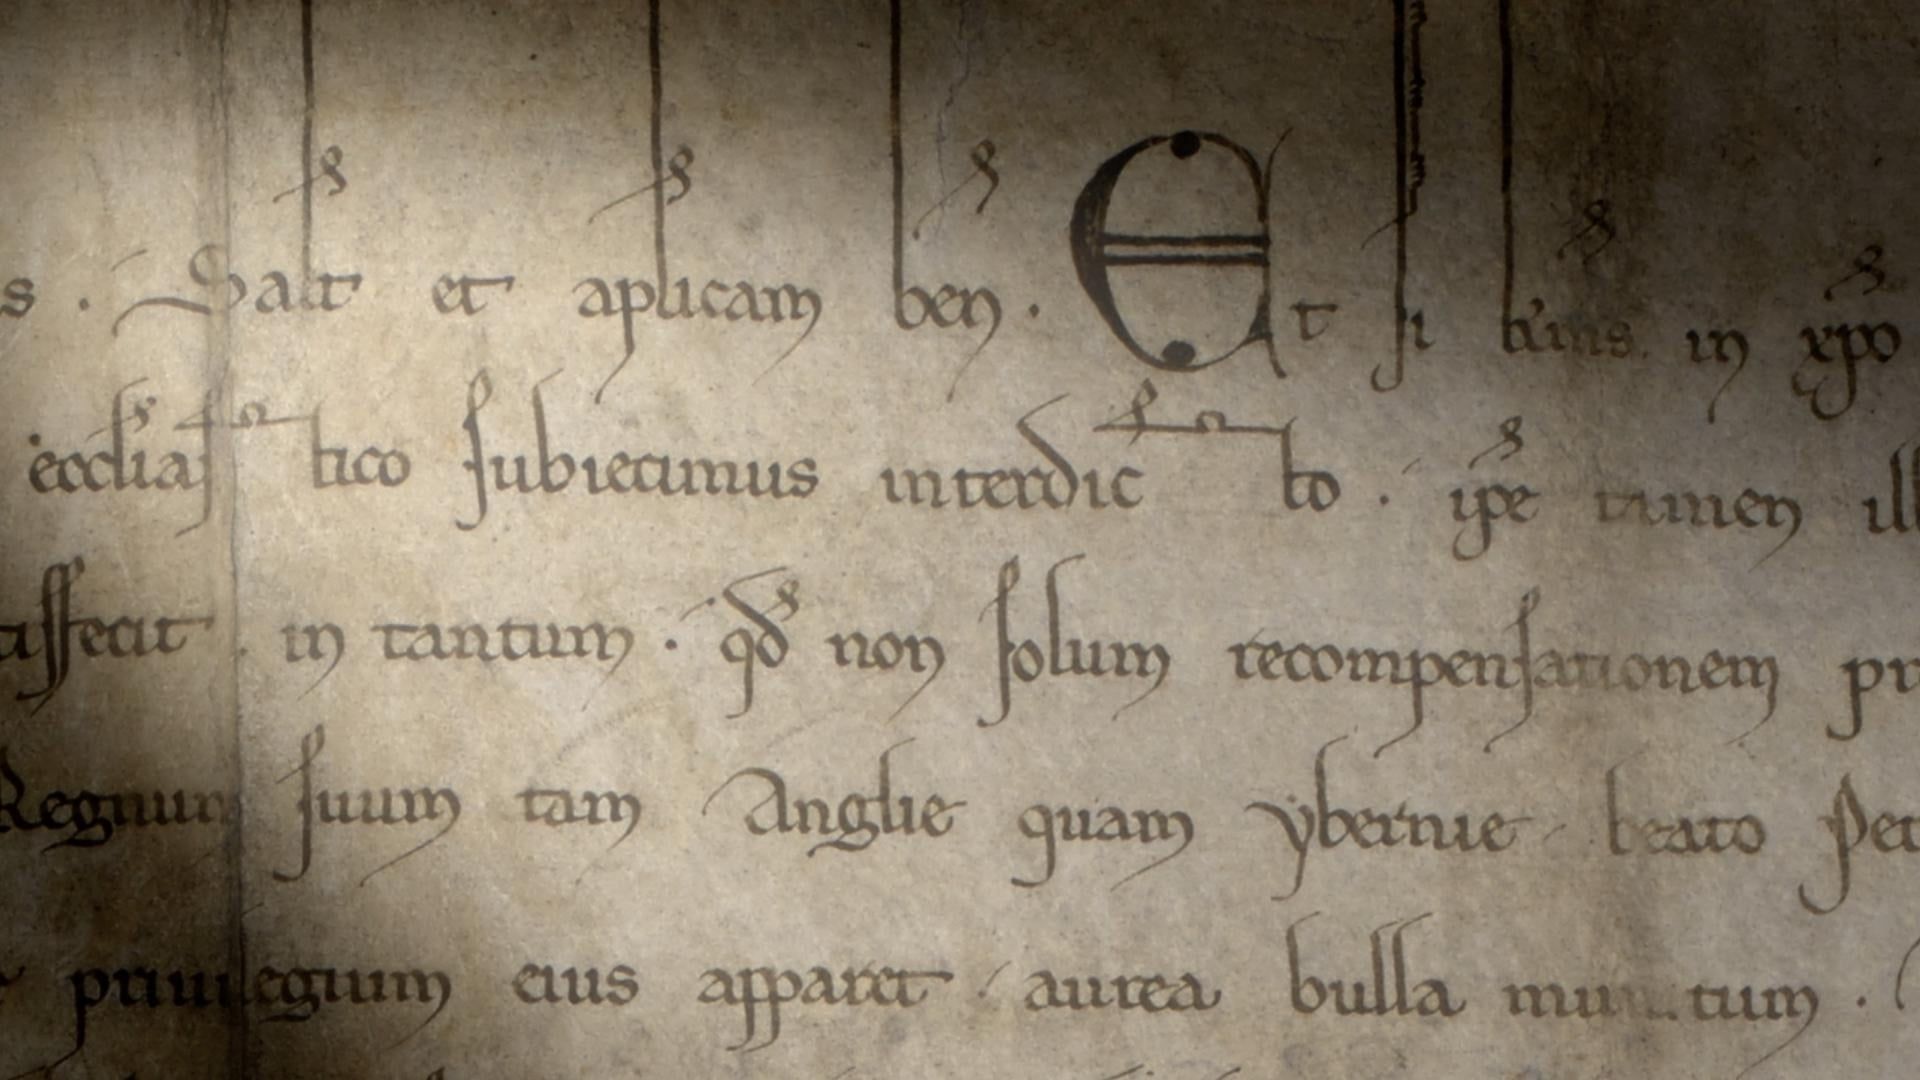 s . Salt et aplicam ben . Et si kmis in xpo
ecclias tico subiecimus interdic to . ipe tamen ill
tissecit . in tantum . qd non solum recompensationem pr
Regnum suum tam Anglie quam ybernie beato Pet
priuilegium eius apparet . aurea bulla munitum .